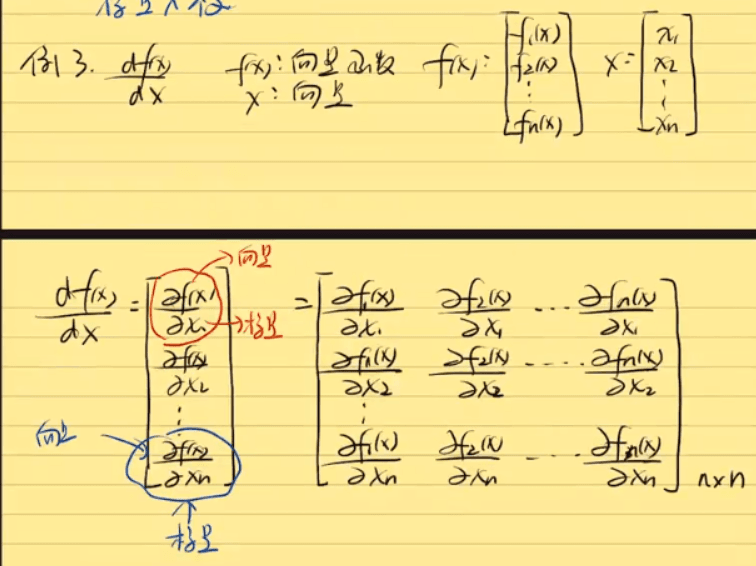 例3. df(x)/dx f(x): 向量函数 x: 向量 f(x): [f₁(x) f₂(x) ⋮ fₙ(x)] x = [x₁ x₂ ⋮ xₙ]
向量
df(x)/dx = [∂f(x)/∂x₁ = [∂f₁(x)/∂x₁ ∂f₂(x)/∂x₁ ... ∂fₙ(x)/∂x₁
标量
∂f(x)/∂x₂ ∂f₁(x)/∂x₂ ∂f₂(x)/∂x₂ ... ∂fₙ(x)/∂x₂
⋮ ⋮
向量 ∂f(x)/∂xₙ] ∂f₁(x)/∂xₙ ∂f₂(x)/∂xₙ ... ∂fₙ(x)/∂xₙ] n×n
标量